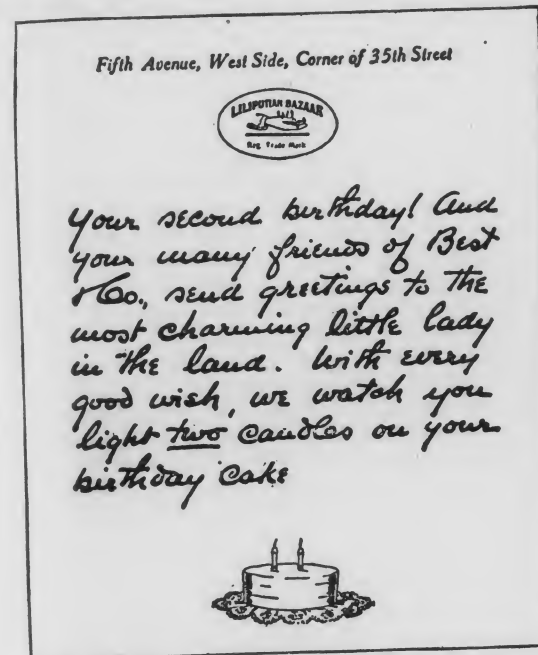 Fifth Avenue, West Side, Corner of 35th Street
LILIPUTIAN BAZAAR
Reg. Trade Mark
Your second birthday! And
your many friends of Best
& Co., send greetings to the
most charming little lady
in the land. With every
good wish, we watch you
light two candles on your
birthday cake